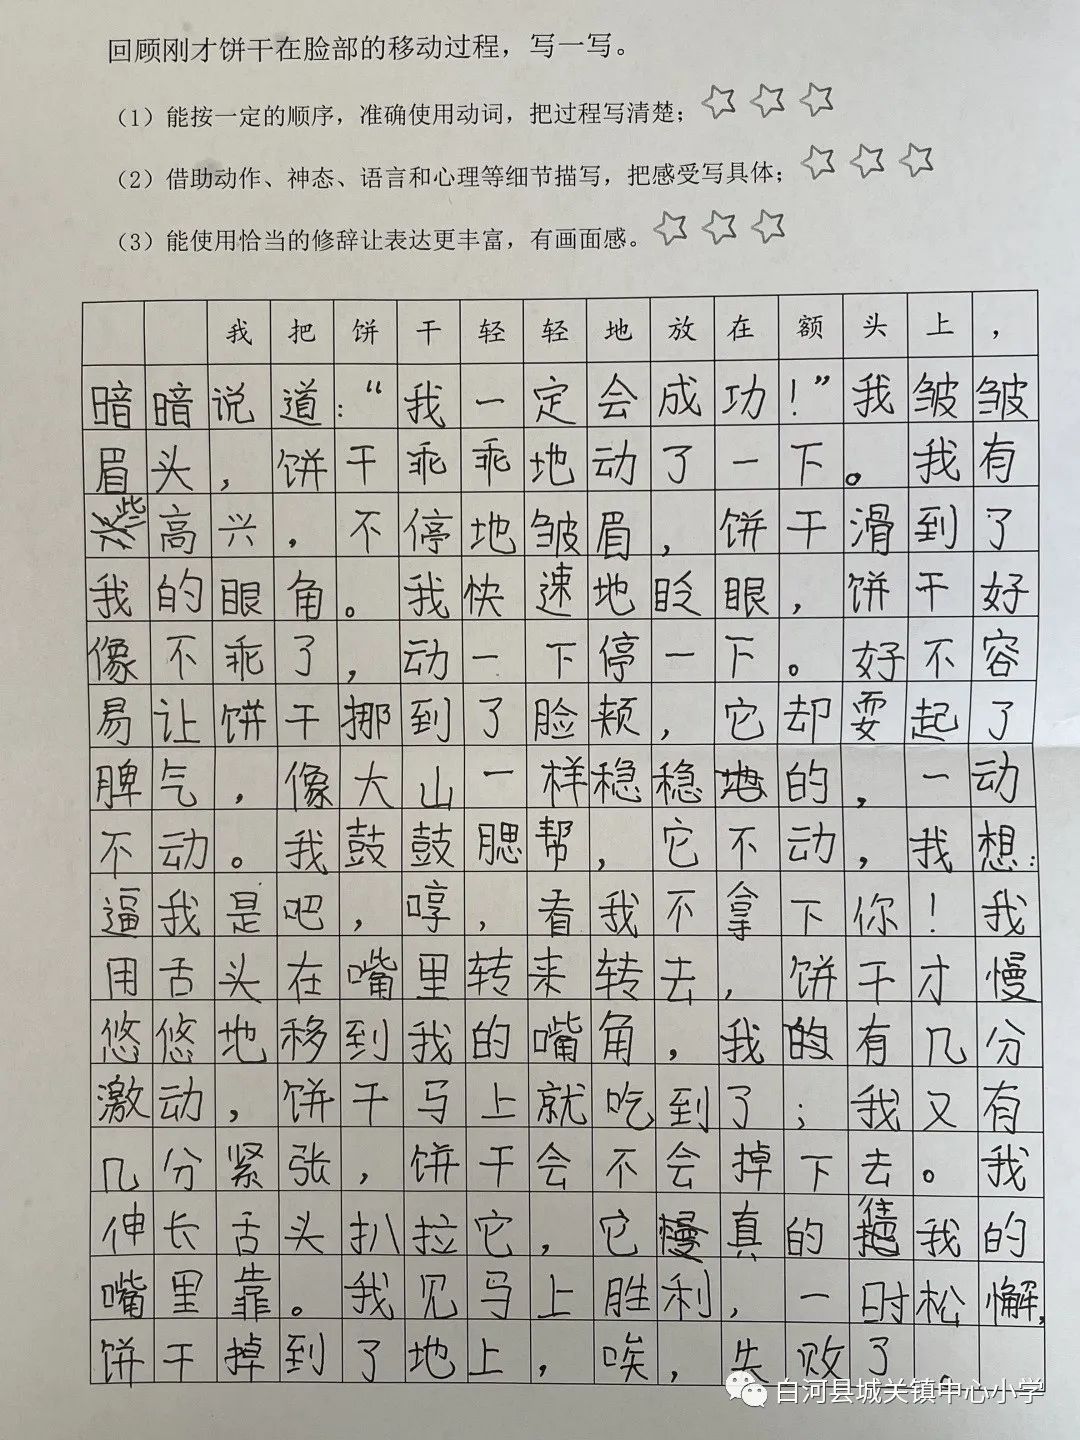 回顾刚才饼干在脸部的移动过程，写一写。
（1）能按一定的顺序，准确使用动词，把过程写清楚；
（2）借助动作、神态、语言和心理等细节描写，把感受写具体；
（3）能使用恰当的修辞让表达更丰富，有画面感。
我把饼干轻轻地放在额头上，
暗暗说道：“我一定会成功！”我皱皱
眉头，饼干乖乖地动了一下。我有
些高兴，不停地皱眉，饼干滑到了
我的眼角。我快速地眨眼，饼干好
像不乖了，动一下停一下。好不容
易让饼干挪到了脸颊，它却耍起了
脾气，像大山一样稳稳地的，一动
不动。我鼓鼓腮帮，它不动，我想：
逼我是吧，哼，看我不拿下你！我
用舌头在嘴里转来转去，饼干才慢
悠悠地移到我的嘴角，我的有几分
激动，饼干马上就吃到了；我又有
几分紧张，饼干会不会掉下去。我
伸长舌头扒拉它，它真的往我的
嘴里靠。我见马上胜利，一时松懈，
饼干掉到了地上，唉，失败了。
白河县城关镇中心小学